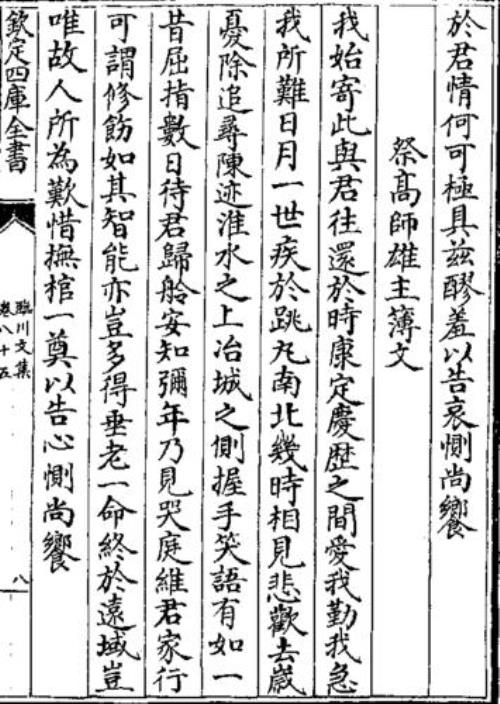 於君情何可極具茲醪羞以告哀惻尚饗
祭髙師雄主薄文
我始寄此與君往還於時康定慶歴之間愛我勤我急
我所難日月一世疾於跳丸南北幾時相見悲歡去嵗
憂除追尋陳迹淮水之上冶城之側握手笑語有如一
昔屈指數日待君歸舲安知彌年乃見哭庭維君家行
可謂修飭如其智能亦豈多得垂老一命終於遠域豈
唯故人所為歎惜撫棺一奠以告心惻尚饗
欽定四庫全書
臨川文集
卷八十五
八